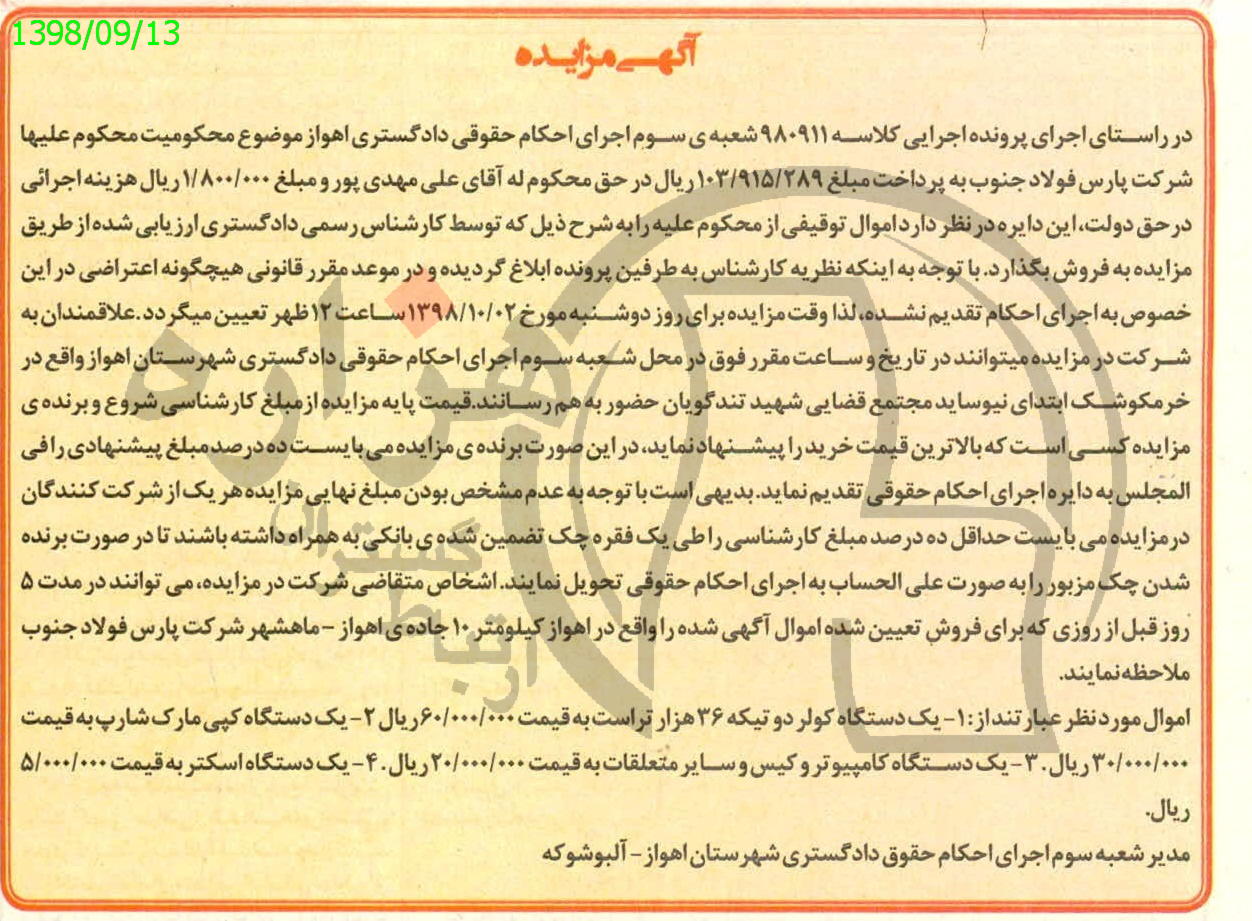 1398/09/13
آگهی مزایده
در راستای اجرای پرونده اجرایی کلاسه ۹۸۰۹۱۱ شعبه ی سوم اجرای احکام حقوقی دادگستری اهواز موضوع محکومیت محکوم علیها
شرکت پارس فولاد جنوب به پرداخت مبلغ ۱۰۳/۹۱۵/۲۸۹ ریال در حق محکوم له آقای علی مهدی پور و مبلغ ۱/۸۰۰/۰۰۰ ریال هزینه اجرائی
در حق دولت، این دایره در نظر دارد اموال توقیفی از محکوم علیه را به شرح ذیل که توسط کارشناس رسمی دادگستری ارزیابی شده از طریق
مزایده به فروش بگذارد. با توجه به اینکه نظریه کارشناس به طرفین پرونده ابلاغ گردیده و در موعد مقرر قانونی هیچگونه اعتراضی در این
خصوص به اجرای احکام تقدیم نشده، لذا وقت مزایده برای روز دوشنبه مورخ ۱۳۹۸/۱۰/۰۲ ساعت ۱۲ ظهر تعیین میگردد. علاقمندان به
شرکت در مزایده میتوانند در تاریخ و ساعت مقرر فوق در محل شعبه سوم اجرای احکام حقوقی دادگستری شهرستان اهواز واقع در
خرمکوشک ابتدای نیوساید مجتمع قضایی شهید تندگویان حضور به هم رسانند. قیمت پایه مزایده از مبلغ کارشناسی شروع و برنده ی
مزایده کسی است که بالاترین قیمت خرید را پیشنهاد نماید، در این صورت برنده ی مزایده می بایست ده درصد مبلغ پیشنهادی را فی
المجلس به دایره اجرای احکام حقوقی تقدیم نماید. بدیهی است با توجه به عدم مشخص بودن مبلغ نهایی مزایده هر یک از شرکت کنندگان
در مزایده می بایست حداقل ده درصد مبلغ کارشناسی را طی یک فقره چک تضمین شده ی بانکی به همراه داشته باشند تا در صورت برنده
شدن چک مزبور را به صورت علی الحساب به اجرای احکام حقوقی تحویل نمایند. اشخاص متقاضی شرکت در مزایده، می توانند در مدت ۵
روز قبل از روزی که برای فروش تعیین شده اموال آگهی شده را واقع در اهواز کیلومتر ۱۰ جاده ی اهواز - ماهشهر شرکت پارس فولاد جنوب
ملاحظه نمایند.
اموال مورد نظر عبارتند از: ۱- یک دستگاه کولر دو تیکه ۳۶ هزار تراست به قیمت ۶۰/۰۰۰/۰۰۰ ریال ۲- یک دستگاه کپی مارک شارپ به قیمت
۳۰/۰۰۰/۰۰۰ ریال. ۳- یک دستگاه کامپیوتر و کیس و سایر متعلقات به قیمت ۲۰/۰۰۰/۰۰۰ ریال. ۴- یک دستگاه اسکنر به قیمت ۵/۰۰۰/۰۰۰
ریال.
مدیر شعبه سوم اجرای احکام حقوق دادگستری شهرستان اهواز - آلبوشوکه
هزاره
ارتباط
گستران